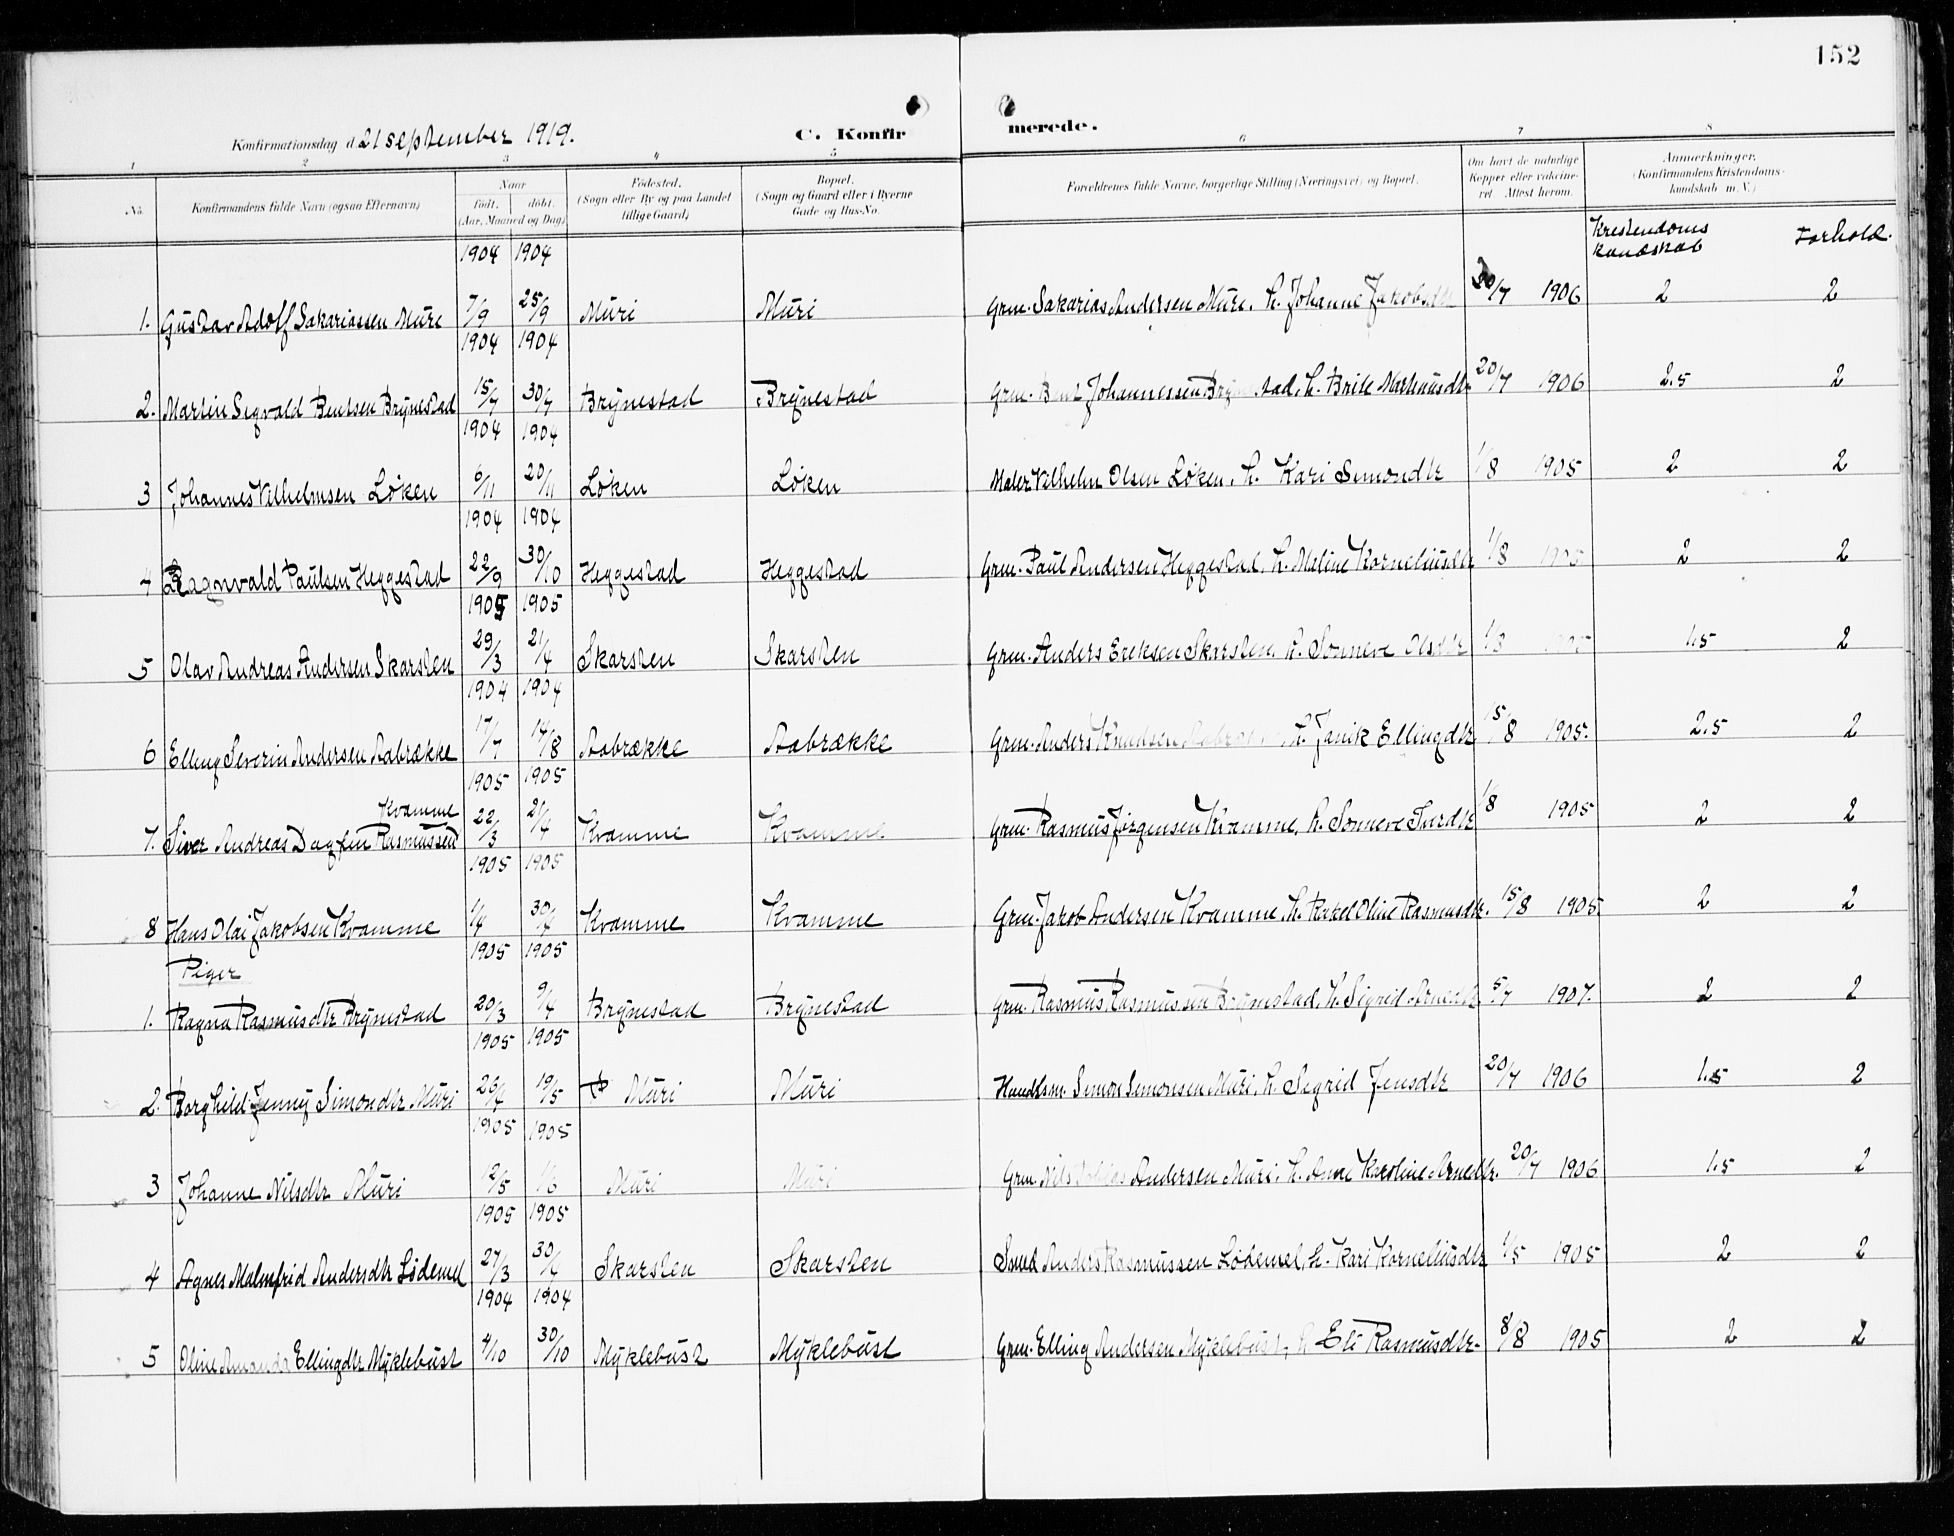 152
Konfirmationsdag d. 21 september 1919.
C. Konfirmerede.
1 2 3 4 5 6 7 8
No. Konfirmandens fulde Navn (ogsaa Efternavn) Naar født. døbt. (Aar, Maaned og Dag) Fødested. (Sogn eller By og paa Landet tillige Gaard) Bopæl. (Sogn og Gaard eller i Byerne Gade og Hus-No. Forældrenes fulde Navne, borgerlige Stilling (Næringsvei) og Bopæl. Om havt de naturlige Kopper eller vakcineret Attest herom. Anmærkninger. (Konfirmandens Kristendomskundskab m. V.)
Kristendoms kundskab Forhold.
1904 1904
1. Gustav Adolf Sakariassen Muri 7/9 25/9 Muri Muri Grm. Sakarias Andersen Muri, h. Johanne Jakobsdtr 20/7 1906 2 2
1904 1904
2. Martin Sigvald Bentsen Brynestad 15/7 30/7 Brynestad Brynestad Grm. Bent Johannessen Brynestad, h. Brite Markusdtr 20/7 1906 2.5 2
1904 1904
3 Johannes Vilhelmsen Løken 6/11 20/11 Løken Løken Maler Vilhelm Olsen Løken, h. Kari Simondtr 1/8 1905 2 2
1904 1904
4 Ragnvald Paulsen Heggestad 22/9 30/10 Heggestad Heggestad Grm. Paul Andersen Heggestad, h. Maline Korneliusdtr 1/8 1905 2 2
1905 1905
5 Olav Andreas Andersen Skarsten 29/3 21/4 Skarsten Skarsten Grm. Anders Eriksen Skarsten, h. Sønneve Olsdtr 1/8 1905 1.5 2
1904 1904
6 Elling Severin Andersen Aabrække 17/7 14/8 Aabrække Aabrække Grm. Anders Knudsen Aabrække, h. Janik Ellingdtr 15/8 1905. 2.5 2
1905 1905
Kvamme
7. Siver Andreas Dagfin Rasmussen 22/3 21/4 Kvamme Kvamme Grm. Rasmus Jørgensen Kvamme, h. Sønneve Sivrdtr 1/8 1905 2 2
1905 1905
8 Hans Olai Jakobsen Kvamme 1/4 30/4 Kvamme Kvamme Grm. Jakob Andersen Kvamme, h. Rakel Oline Rasmusdtr. 15/8 1905 2 2
Piger
1905 1905
1. Ragna Rasmusdtr Brynestad 20/3 9/4 Brynestad Brynestad Grm. Rasmus Rasmussen Brynestad, h. Sigrid Arnedtr 5/7 1907. 2 2
1905 1905
2. Borghild Jenny Simondtr Muri 26/4 19/5 Muri Muri Handlsm. Simon Simonsen Muri, h. Sigrid Jensdtr 20/7 1906 1.5 2
1905 1905
3 Johanne Nilsdtr Muri 12/5 1/6 Muri Muri Grm. Nils Tobias Andersen Muri, h. Ane Karoline Arnedtr. 20/7 1906 1.5 2
1905 1905
4 Agnes Malmfrid Andersdtr Lødemel 27/3 30/4 Skarsten Skarsten Smed Anders Rasmussen Lødemel, h. Kari Korneliusdtr 1/5 1905 2 2
1904 1904
5 Oline Amanda Ellingdtr Myklebust 4/10 30/10 Myklebust Myklebust Grm. Elling Andersen Myklebust, h. Eli Rasmusdtr. 8/8 1905 2 2